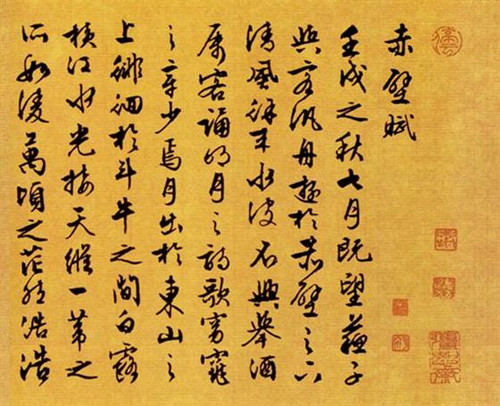 赤壁賦
壬戌之秋七月既望蘇子
與客汎舟遊於赤壁之下
清風徐來水波不興舉酒
属客誦明月之詩歌窈窕
之章少焉月出於東山之
上徘徊於斗牛之間白露
橫江水光接天縱一葦之
所如凌萬頃之茫然浩浩